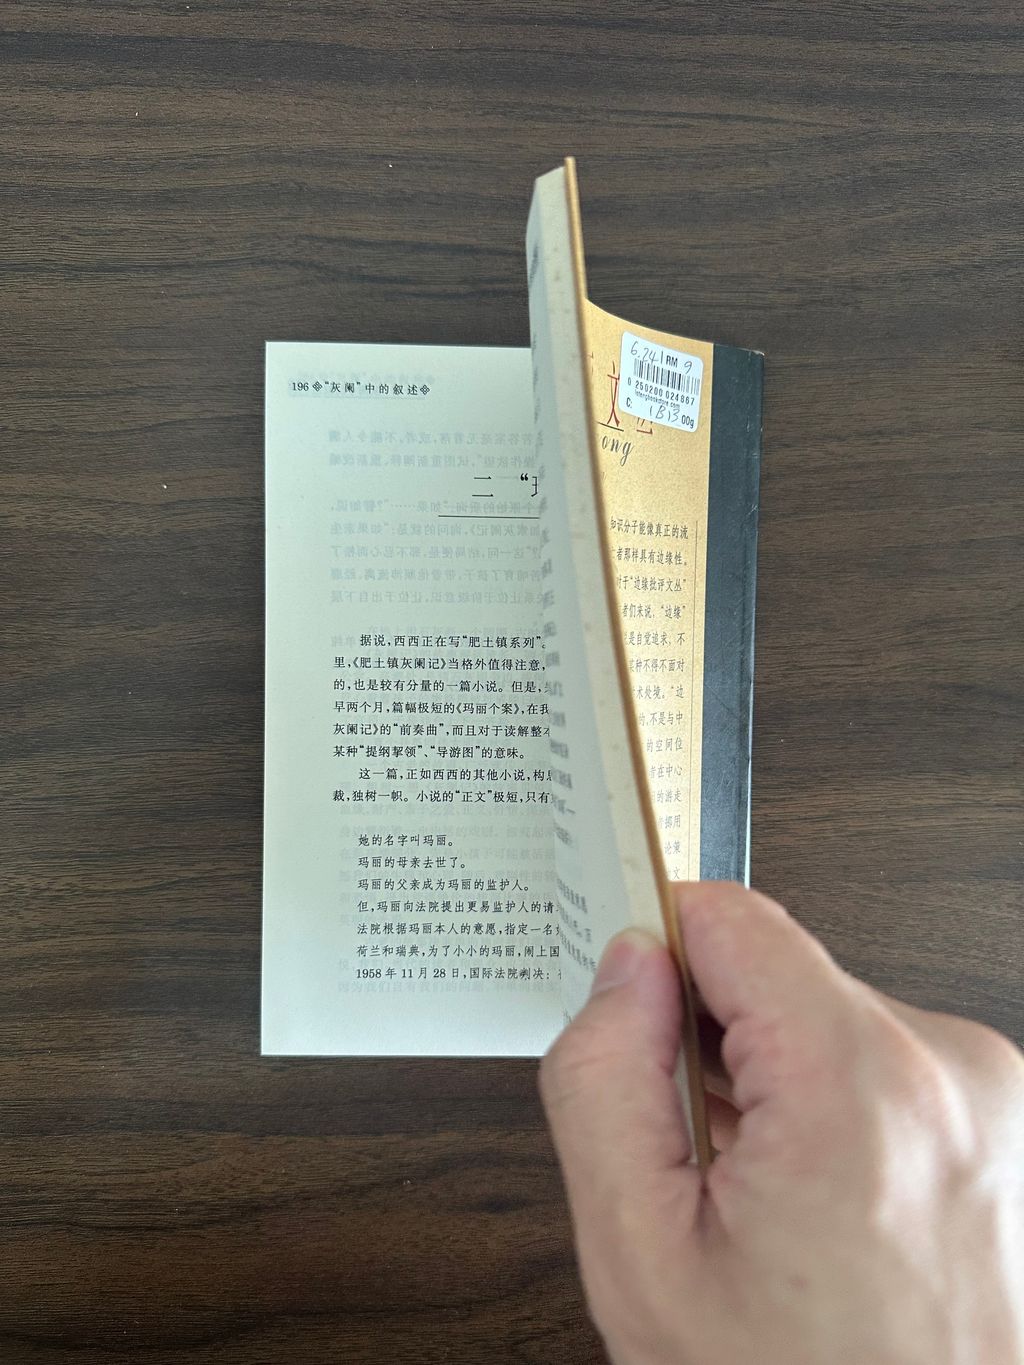 196 “灰阑”中的叙述
二 “
据说,西西正在写“肥土镇系列”。
里,《肥土镇灰阑记》当格外值得注意,
的,也是较有分量的一篇小说。但是,
早两个月,篇幅极短的《玛丽个案》,在我
灰阑记》的“前奏曲”,而且对于读解整
某种“提纲挈领”、“导游图”的意味。
这一篇,正如西西的其他小说,构思
裁,独树一帜。小说的“正文”极短,只有
她的名字叫玛丽。
玛丽的母亲去世了。
玛丽的父亲成为玛丽的监护人。
但,玛丽向法院提出更易监护人的请
法院根据玛丽本人的意愿,指定一名
荷兰和瑞典,为了小小的玛丽,闹上国
1958年11月28日,国际法院判决:
6.241 RM 9
0 250200 024867
C: 1B13 00g
文丛
ong
知识分子能像真正的流
者那样具有边缘性。
对于“边缘批评文丛”
者们来说,“边缘”
是自觉追求,不
某种不得不面对
术处境。“边
的,不是与中
的空间位
者在中心
的游走
挪用
论策
文